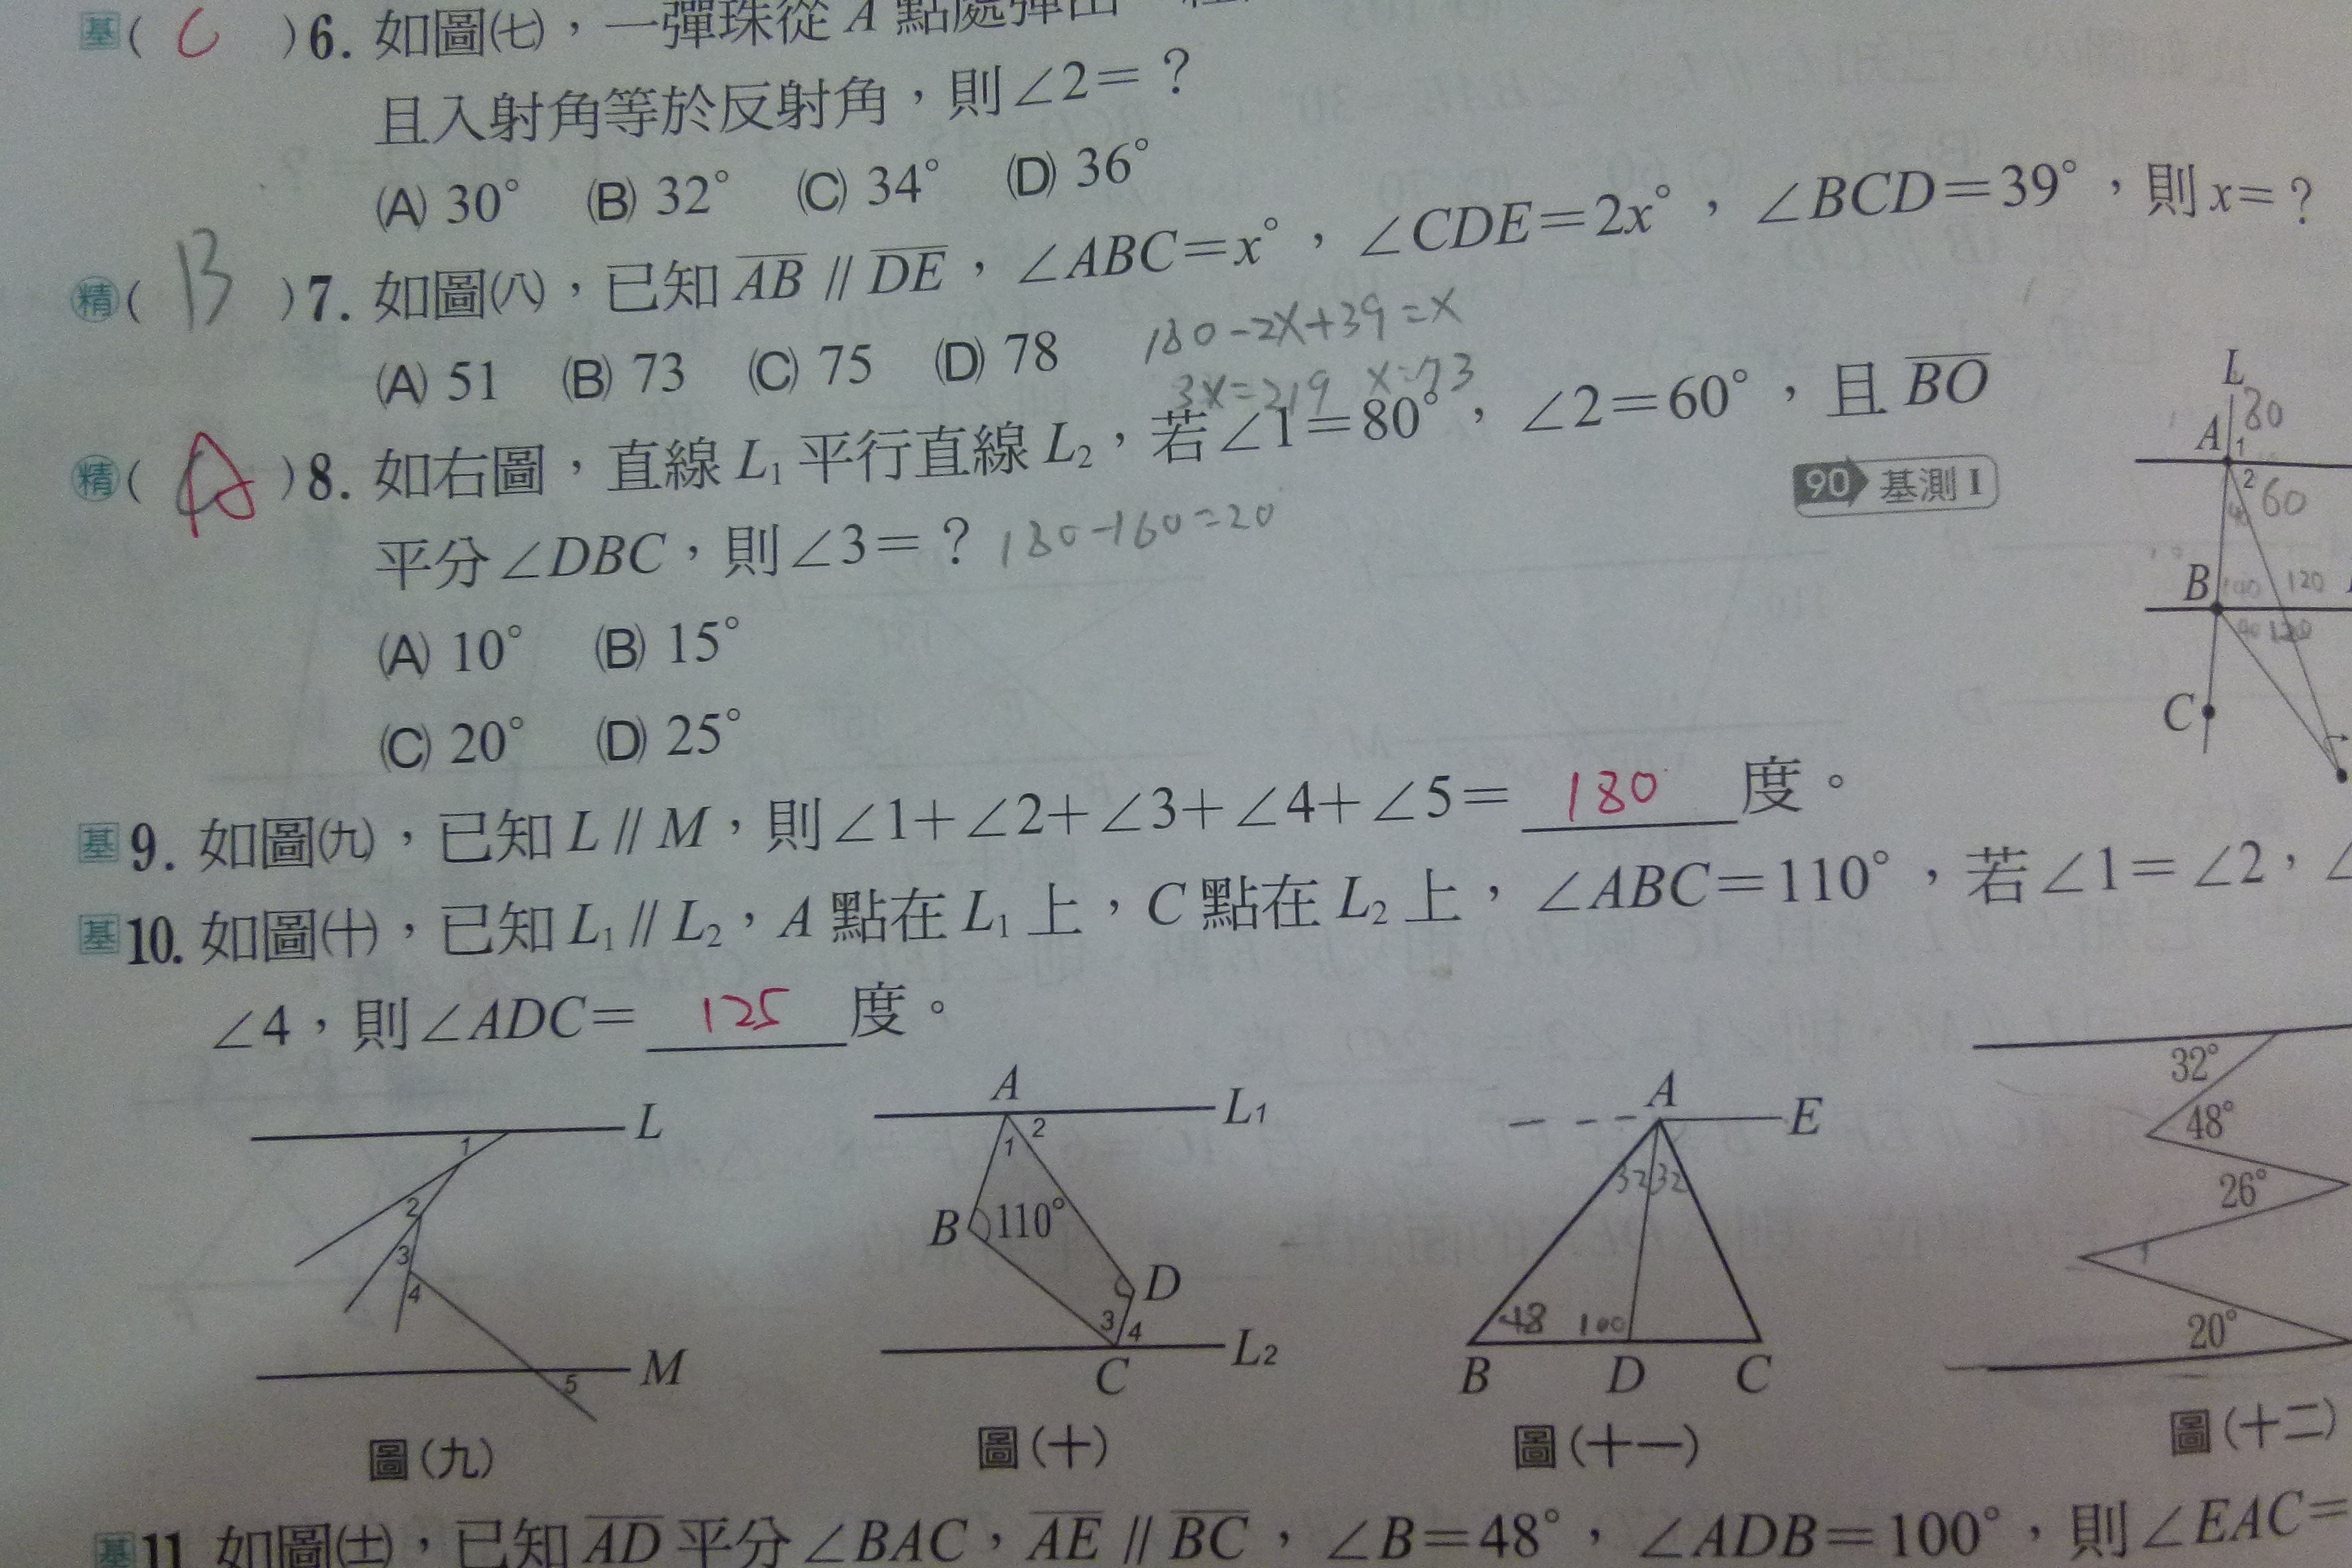 基( C )6. 如圖(七),一彈珠從 A 點處彈出
且入射角等於反射角,則∠2=?
(A) 30° (B) 32° (C) 34° (D) 36°
精( B )7. 如圖(八),已知 AB // DE,∠ABC=x°,∠CDE=2x°,∠BCD=39°,則 x=?
(A) 51 (B) 73 (C) 75 (D) 78
180-2x+39=x
3x=219 x=73
精( A )8. 如右圖,直線 L1 平行直線 L2,若∠1=80°,∠2=60°,且 BO
90 基測 I
平分∠DBC,則∠3=? 180-160=20
(A) 10° (B) 15°
(C) 20° (D) 25°
L
A 1 80
2 60
40
B 120
C
基9. 如圖(九),已知 L // M,則∠1+∠2+∠3+∠4+∠5= 180 度。
基10. 如圖(十),已知 L1 // L2,A 點在 L1 上,C 點在 L2 上,∠ABC=110°,若∠1=∠2,∠
∠4,則∠ADC= 125 度。
L
1
2
3
4
M
5
圖(九)
A
L1
1 2
B 110°
D
3 4
C
L2
圖(十)
A E
32 32
48 100
B D C
圖(十一)
32°
48°
26°
1
20°
圖(十二)
基11. 如圖(十一),已知 AD 平分∠BAC,AE // BC,∠B=48°,∠ADB=100°,則∠EAC=